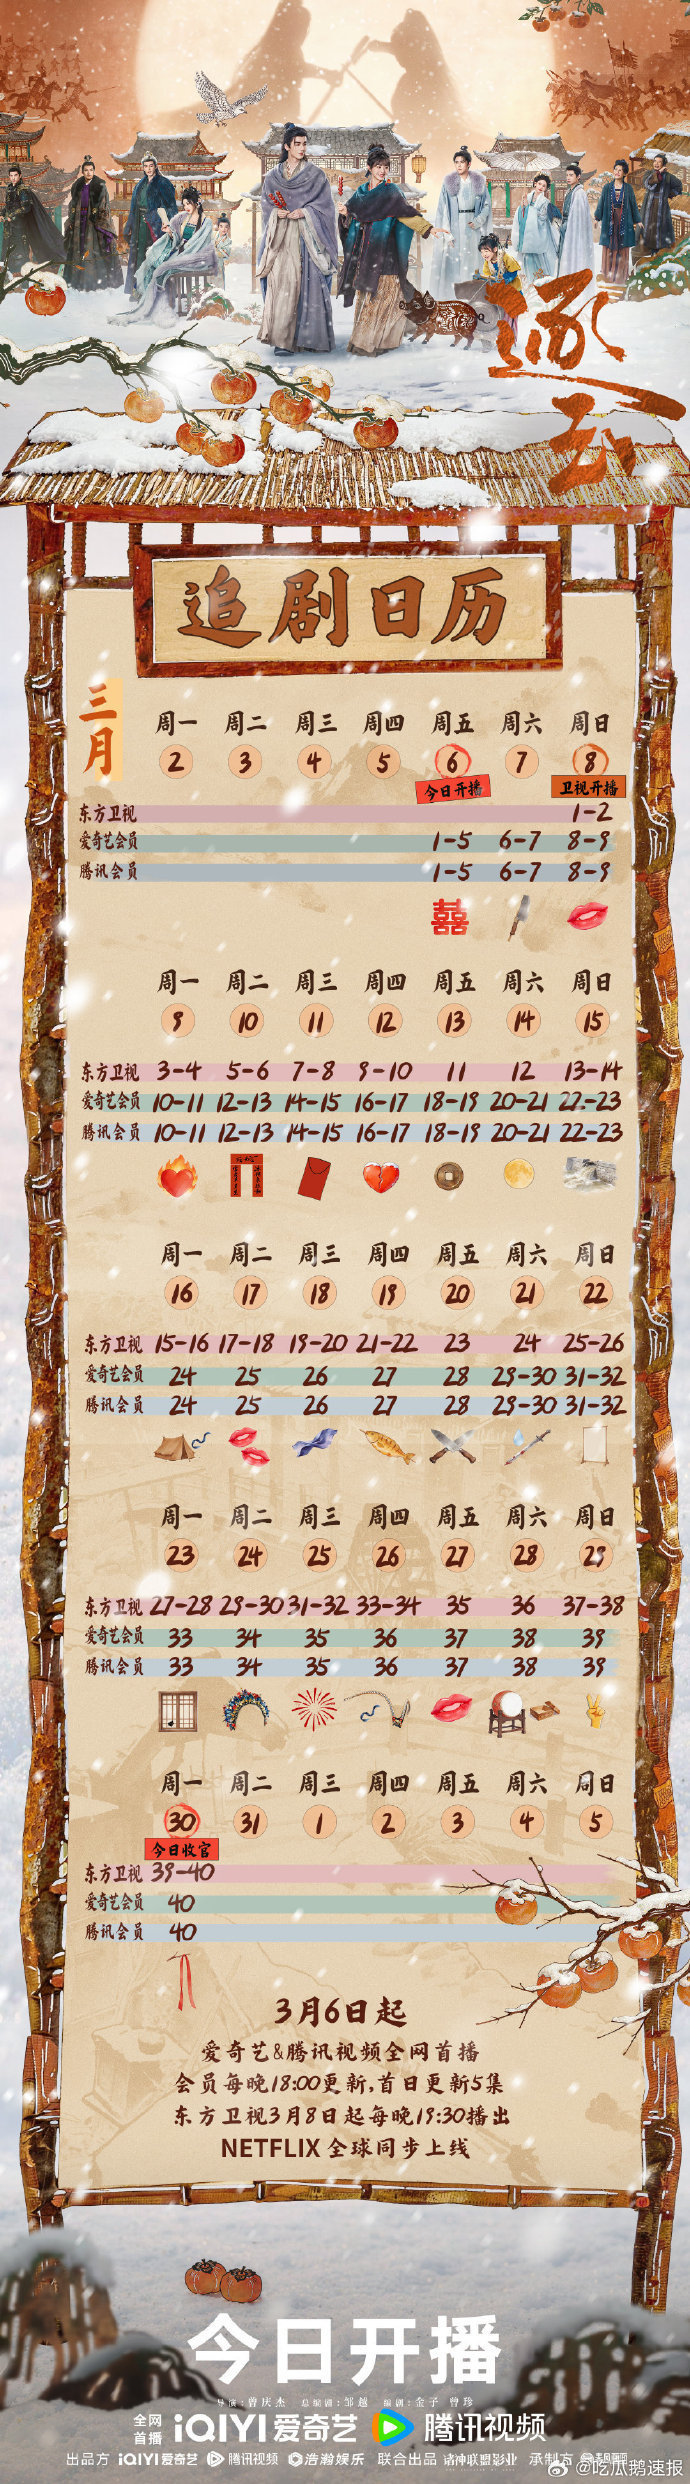 逐玉
追剧日历
三月
周一 周二 周三 周四 周五 周六 周日
2 3 4 5 6 7 8
今日开播 卫视开播
东方卫视 1-2
爱奇艺会员 1-5 6-7 8-9
腾讯会员 1-5 6-7 8-9
囍
周一 周二 周三 周四 周五 周六 周日
9 10 11 12 13 14 15
东方卫视 3-4 5-6 7-8 9-10 11 12 13-14
爱奇艺会员 10-11 12-13 14-15 16-17 18-19 20-21 22-23
腾讯会员 10-11 12-13 14-15 16-17 18-19 20-21 22-23
周一 周二 周三 周四 周五 周六 周日
16 17 18 19 20 21 22
东方卫视 15-16 17-18 19-20 21-22 23 24 25-26
爱奇艺会员 24 25 26 27 28 29-30 31-32
腾讯会员 24 25 26 27 28 29-30 31-32
周一 周二 周三 周四 周五 周六 周日
23 24 25 26 27 28 29
东方卫视 27-28 29-30 31-32 33-34 35 36 37-38
爱奇艺会员 33 34 35 36 37 38 39
腾讯会员 33 34 35 36 37 38 39
周一 周二 周三 周四 周五 周六 周日
30 31 1 2 3 4 5
今日收官
东方卫视 39-40
爱奇艺会员 40
腾讯会员 40
3月6日起
爱奇艺&腾讯视频全网首播
会员每晚18:00更新,首日更新5集
东方卫视3月8日起每晚19:30播出
NETFLIX 全球同步上线
今日开播
导演:曾庆杰 总编剧:邹越 编剧:金子 曾珍
全网首播 iQIYI爱奇艺 腾讯视频
出品方 iQIYI爱奇艺 腾讯视频 浩瀚娱乐 联合出品 诸神联盟影业 承制方
@吃瓜鹅速报